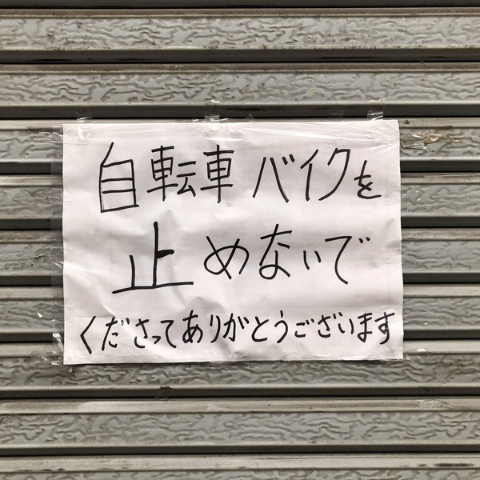 自転車 バイクを
止めないで
くださってありがとうございます